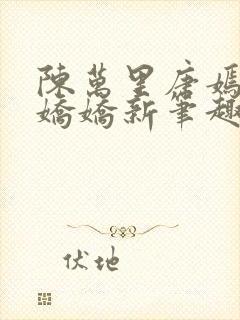 陳萬里唐嫣
嬌嬌新筆趣
伏地